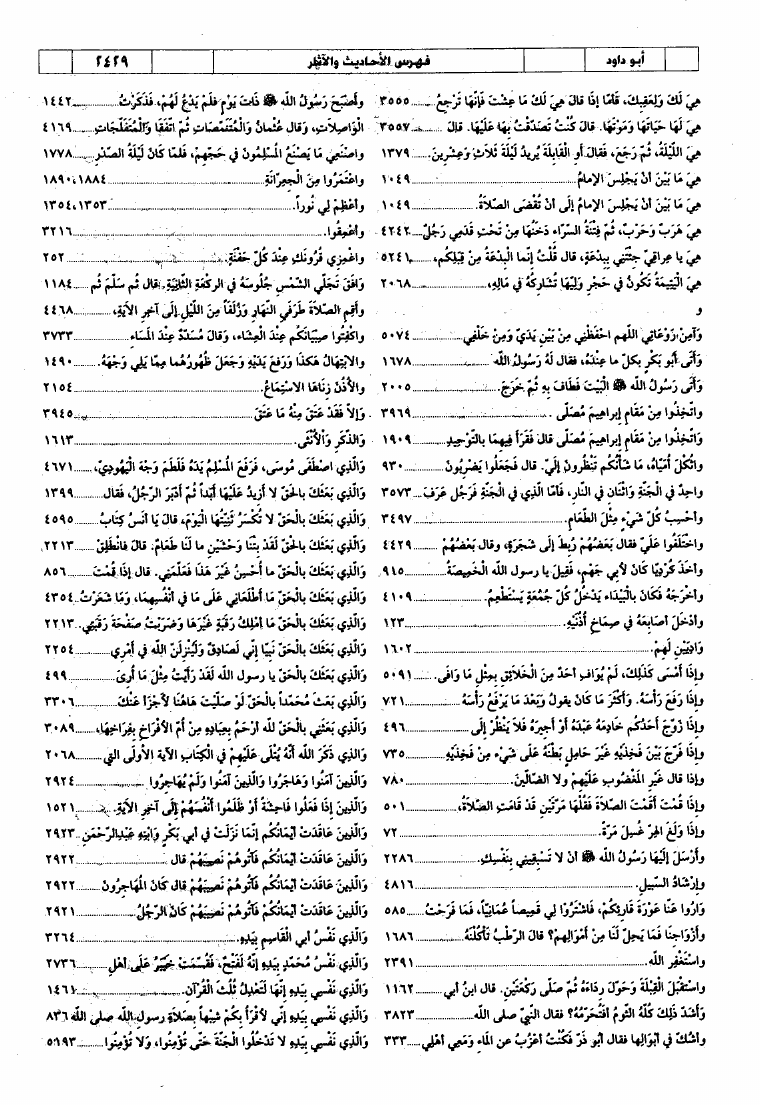 أبو داود
فهرس الأحاديث والآثار
٢٤٢٩
هِيَ لَكَ وَلِعَقِبِكَ، فَأمَّا إذَا قالَ هِيَ لَكَ مَا عِشْتَ فَإنَّهَا تَرْجِعُ ..... ٣٥٥٥
هِيَ لَهَا حَيَاتَهَا وَمَوْتَهَا. قالَ كُنْتُ تَصَدَّقْتُ بِهَا عَلَيْهَا. قالَ ..... ٣٥٥٧
هِيَ اللَّيْلَةُ، ثُمَّ رَجَعَ، فَقالَ أوِ الْقَابِلَةُ يُرِيدُ لَيْلَةَ ثَلَاثٍ وَعِشْرِينَ. ..... ١٣٧٩
هِيَ مَا بَيْنَ أنْ يَجْلِسَ الإمَامُ ..... ١٠٤٩
هِيَ مَا بَيْنَ أنْ يَجْلِسَ الإمَامُ إلَى أنْ تُقْضَى الصَّلَاةُ. ..... ١٠٤٩
هِيَ هَرَبٌ وَحَرْبٌ، ثُمَّ فِتْنَةُ السَّرَّاءِ دَخَنُهَا مِنْ تَحْتِ قَدَمَيْ رَجُلٍ ..... ٤٢٤٢
هِيَ يا عِرَاقيُّ جِئْتَنِي بِبِدْعَةٍ، قال قُلْتُ إنَّما الْبِدْعَةُ مِنْ قِبَلِكُم، ..... ٥٢٤١
هِيَ الْيَتِيمَةُ تَكُونُ في حَجْرِ وَلِيِّهَا تُشَارِكُهُ في مَالِهِ، ..... ٢٠٦٨
و
وَآمِنْ رَوْعَاتِي اللَّهم احْفَظْنِي مِنْ بَيْنِ يَدَيَّ وَمِنْ خَلْفِي ..... ٥٠٧٤
وَأتَى أبُو بَكْرٍ بكلِّ ما عِنْدَهُ، فقال لَهُ رَسُولُ الله ..... ١٦٧٨
وَأتَى رَسُولُ الله ﷺ الْبَيْتَ فَطَافَ بِهِ ثُمَّ خَرَجَ. ..... ٢٠٠٥
واتَّخِذُوا مِنْ مَقَامِ إبراهِيمَ مُصَلًّى ..... ٣٩٦٩
وَاتَّخِذُوا مِنْ مَقَامِ إبراهِيمَ مُصَلًّى قال فَقَرَأ فِيهِمَا بالتَّوْحِيدِ ..... ١٩٠٩
واثُكْلَ أُمِّيَاهُ، مَا شَأْنُكُم تَنْظُرونَ إلَيَّ. قال فَجَعَلُوا يَضْرِبُونَ ..... ٩٣٠
واحِدٌ في الْجَنَّةِ وَاثْنَانِ في النَّارِ، فَأمَّا الَّذِي في الْجَنَّةِ فَرَجُلٌ عَرَفَ ..... ٣٥٧٣
وأحْسِبُ كُلَّ شَيْءٍ مِثْلُ الطَّعَامِ. ..... ٣٤٩٧
واخْتَلَفُوا عَلَيَّ فقال بَعْضُهُمْ رُبِطَ إلَى شَجَرَةٍ، وقال بَعْضُهُمْ ..... ٤٤٢٩
وأخَذَ كُرْدِيًّا كَانَ لأبي جَهْمٍ، فَقِيلَ يا رسول الله الْخَمِيصَةُ ..... ٩١٥
وأخْرَجَهُ فَكَانَ بالْبَيْدَاءِ يَدْخُلُ كُلَّ جُمُعَةٍ يَسْتَطْعِمُ. ..... ٤١٠٩
وأدْخَلَ أصَابِعَهُ في صِمَاخِ أُذُنَيْهِ. ..... ١٢٣
وَادِيَيْنِ لَهُمْ. ..... ١٦٠٢
وإذَا أمْسَى كَذَلِكَ، لَمْ يُوَافِ أحَدٌ مِنَ الْخَلَائِقِ بِمِثْلِ مَا وَافَى. ..... ٥٠٩١
وإذَا رَفَعَ رَأسَهُ. وأكْثَرَ مَا كانَ يقولُ وَبَعْدَ مَا يَرْفَعُ رَأسَهُ ..... ٧٢١
وإذَا زَوَّجَ أحَدُكُم خَادِمَهُ عَبْدَهُ أوْ أجِيرَهُ فَلَا يَنْظُرْ إلَى ..... ٤٩٦
وإذَا فَرَّجَ بَيْنَ فَخِذَيْهِ غَيْرَ حَامِلٍ بَطْنَهُ عَلَى شَيْءٍ مِنْ فَخِذَيْهِ ..... ٧٣٥
وإذا قال غَيْرِ المَغْضُوبِ عَلَيْهِمْ ولا الضَّالِّينَ. ..... ٧٨٠
وإذَا قُمْتَ أقَمْتَ الصَّلَاةَ فَقُلْهَا مَرَّتَيْنِ قَدْ قَامَتِ الصَّلَاةُ، ..... ٥٠١
وإذَا وَلَغَ الْهِرُّ غُسِلَ مَرَّةً. ..... ٧٢
وَأرْسَلَ إلَيْهَا رَسُولُ الله ﷺ أنْ لا تَسْبِقِيني بِنَفْسِكِ. ..... ٢٢٨٦
وإرْشَادُ السَّبِيلِ. ..... ٤٨١٦
وَارُوا عَنَّا عَوْرَةَ قَارِئِكُم، فَاشْتَرَوْا لِي قَمِيصاً عُمَانِيّاً، فَمَا فَرِحْتُ ..... ٥٨٥
وأزْوَاجِنَا فَمَا يَحِلُّ لَنَا مِنْ أمْوَالِهِمْ؟ قالَ الرَّطْبُ تَأكُلْنَهُ ..... ١٦٨٦
واسْتَغْفِرِ الله ..... ٢٣٩١
واسْتَقْبَلَ الْقِبْلَةَ وَحَوَّلَ رِدَاءَهُ ثُمَّ صَلَّى رَكْعَتَيْنِ. قال ابنُ أبي ..... ١١٦٢
وَأشَدُّ ذَلِكَ كُلِّهِ الثُّومُ أفَتُحَرِّمُهُ؟ فقال النَّبيُّ صلى الله ..... ٣٨٢٣
وأشُكُّ في أبْوَالِها فقال أبُو ذَرٍّ فَكُنْتُ أعْزُبُ عن المَاءِ وَمَعِي أهْلِي ..... ٣٣٣
وأصْبَحَ رَسُولُ الله ﷺ ذَاتَ يَوْمٍ فَلَمْ يَدْعُ لَهُمْ، فَذَكَرْتُ ..... ١٤٤٢
الْوَاصِلَاتِ، وَقال عُثْمانُ وَالْمُتَنَمِّصَاتِ ثُمَّ اتَّفَقَا وَالْمُتَفَلِّجَاتِ ..... ٤١٦٩
واصْنَعِي مَا يَصْنَعُ الْمُسْلِمُونَ في حَجِّهِمْ، فَلمَّا كَانَ لَيْلَةُ الصَّدَرِ ..... ١٧٧٨
واعْتَمَرُوا مِنَ الْجِعِرَّانَةِ ..... ١٨٨٤، ١٨٩٠
وأعْظِمْ لِي نُوراً. ..... ١٣٥٣، ١٣٥٤
وأعْمِقُوا. ..... ٣٢١٦
واغْمِزِي قُرُونَكِ عِنْدَ كلِّ حَفْنَةٍ. ..... ٢٥٢
وَافَقَ تَجَلِّي الشَّمْسِ جُلُوسَهُ في الرَّكْعَةِ الثَّانِيَةِ. قال ثُمَّ سَلَّمَ ثُم ..... ١١٨٤
وأقِمِ الصَّلَاةَ طَرَفَيِ النَّهَارِ وَزُلَفاً مِنَ اللَّيْلِ إلَى آخِرِ الآيَةِ، ..... ٤٤٦٨
واكْفِتُوا صِبْيَانَكُم عِنْدَ الْعِشَاءِ، وَقالَ مُسَدَّدٌ عِنْدَ المَسَاءِ ..... ٣٧٣٣
والابْتِهَالُ هَكَذَا وَرَفَعَ يَدَيْهِ وَجَعَلَ ظُهُورَهُما مِمَّا يَلِي وَجْهَهُ. ..... ١٤٩٠
والأُذُنُ زِنَاهَا الاسْتِمَاعُ. ..... ٢١٥٤
وَإلَّا فَقَدْ عَتَقَ مِنْهُ مَا عَتَقَ ..... ٣٩٤٥
وَالذَّكَرِ وَالأُنْثَى. ..... ١٦١٣
وَالَّذِي اصْطَفَى مُوسَى، فَرَفَعَ المُسْلِمُ يَدَهُ فَلَطَمَ وَجْهَ الْيَهُودِيِّ، ..... ٤٦٧١
وَالَّذِي بَعَثَكَ بالْحَقِّ لا أزِيدُ عَلَيْهَا أبَداً ثُمَّ أدْبَرَ الرَّجُلُ، فقال ..... ١٣٩٩
وَالَّذِي بَعَثَكَ بالْحَقِّ لا تُكْسَرُ ثَنِيَّتُهَا الْيَوْمَ، قالَ يَا أنَسُ كِتَابُ ..... ٤٥٩٥
وَالَّذِي بَعَثَكَ بالْحَقِّ لَقَدْ بِتْنَا وَحْشَيْنِ ما لَنَا طَعَامٌ. قال فَانْطَلِقْ ..... ٢٢١٣
وَالَّذِي بَعَثَكَ بالْحَقِّ ما أُحْسِنُ غَيْرَ هَذَا فَعَلِّمْنِي. قال إذَا قُمْتَ ..... ٨٥٦
وَالَّذِي بَعَثَكَ بالْحَقِّ ما أطْلَعَانِي عَلَى مَا في أنْفُسِهِمَا، وَمَا شَعَرْتُ ..... ٤٣٥٤
وَالَّذِي بَعَثَكَ بالْحَقِّ مَا أمْلِكُ رَقَبَةً غَيْرَهَا وَضَرَبْتُ صَفْحَةَ رَقَبَتِي. ..... ٢٢١٣
وَالَّذِي بَعَثَكَ بالْحَقِّ نَبِيًّا إنِّي لَصَادِقٌ وَلَيُنْزِلَنَّ الله في أمْرِي ..... ٢٢٥٤
وَالَّذِي بَعَثَكَ بالْحَقِّ يا رسول الله لَقَدْ رَأيْتُ مِثْلَ مَا أُرِيَ ..... ٤٩٩
وَالَّذِي بَعَثَ مُحَمَّداً بالْحَقِّ لَوْ صَلَّيْتَ هَاهُنَا لأَجْزَأ عَنْكَ ..... ٣٣٠٦
وَالَّذِي بَعَثَنِي بالْحَقِّ لله أرْحَمُ بِعِبَادِهِ مِنْ أُمِّ الأفْرَاخِ بِفِرَاخِهَا، ..... ٣٠٨٩
وَالَّذِي ذَكَرَ الله أنَّهُ يُتْلَى عَلَيْهِمْ في الْكِتَابِ الآيةَ الأولَى التي ..... ٢٠٦٨
وَالَّذِينَ آمَنُوا وَهَاجَرُوا وَالَّذِينَ آمَنُوا وَلَمْ يُهَاجِرُوا ..... ٢٩٢٤
وَالَّذِينَ إذَا فَعَلُوا فَاحِشَةً أوْ ظَلَمُوا أنْفُسَهُمْ إلَى آخِرِ الآيَةِ. ..... ١٥٢١
وَالَّذِينَ عَاقَدَتْ أيْمَانُكُم إنَّمَا نَزَلَتْ في أبي بَكْرٍ وَابْنِهِ عَبْدِالرَّحْمَنِ ..... ٢٩٢٣
وَالَّذِينَ عَاقَدَتْ أيْمَانُكُم فَآتُوهُمْ نَصِيبَهُمْ قال ..... ٢٩٢٢
وَالَّذِينَ عَاقَدَتْ أيْمَانُكُم فَآتُوهُمْ نَصِيبَهُمْ قال كَانَ المُهَاجِرُونَ ..... ٢٩٢٢
وَالَّذِينَ عَاقَدَتْ أيْمَانُكُم فَآتُوهُمْ نَصِيبَهُمْ كَانَ الرَّجُلُ ..... ٢٩٢١
وَالَّذِي نَفْسُ أبي الْقَاسِمِ بِيَدِهِ. ..... ٣٢٦٤
وَالَّذِي نَفْسُ مُحَمَّدٍ بِيَدِهِ إنَّهُ لَفَتْحٌ، فَقُسِّمَتْ خَيْبَرُ عَلَى أهْلِ ..... ٢٧٣٦
وَالَّذِي نَفْسِي بِيَدِهِ إنَّهَا لَتَعْدِلُ ثُلُثَ الْقُرْآنِ. ..... ١٤٦١
وَالَّذِي نَفْسِي بِيَدِهِ إنِّي لأقْرَأُ بِكُمْ شَبَهاً بِصَلَاةِ رسولِ الله صلى الله ٨٣٦
وَالَّذِي نَفْسِي بِيَدِهِ لا تَدْخُلُوا الْجَنَّةَ حَتَّى تُؤْمِنُوا، وَلا تُؤْمِنُوا ..... ٥١٩٣